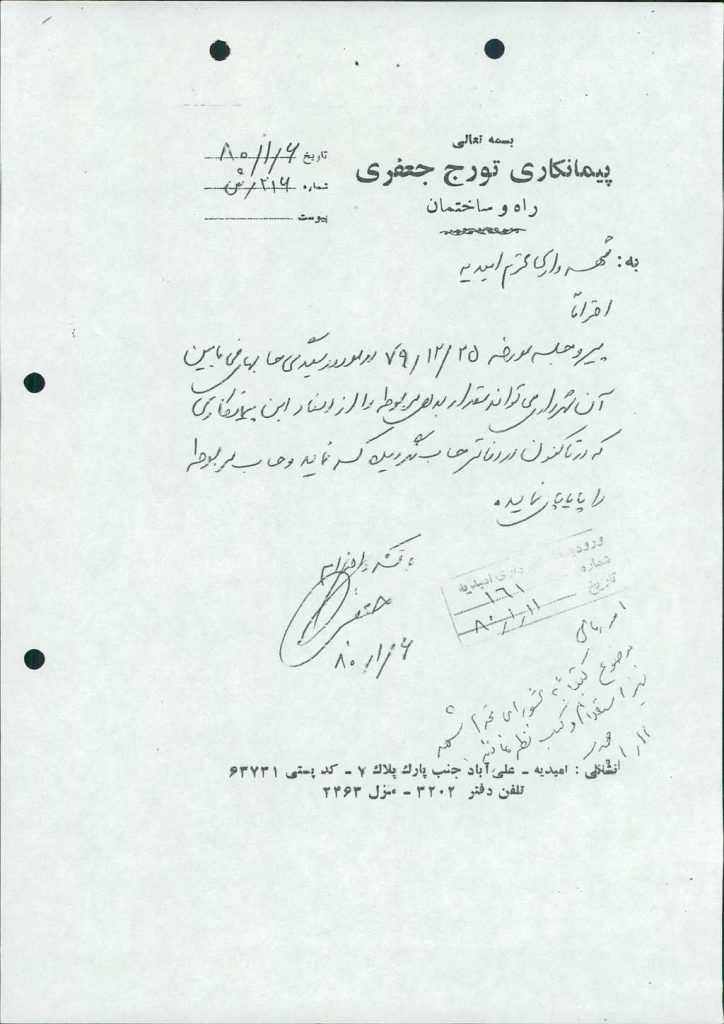 بسمه تعالی
پیمانکاری تورج جعفری
راه و ساختمان
تاریخ ۸۰/۱/۶
شماره ۲۱۶/ش
پیوست
به: شهرداری محترم امیدیه
احتراماً
پیرو جلسه مورخه ۷۹/۱۲/۲۵ در مورد رسیدگی حسابهای فی مابین
آن شهرداری می تواند مقدار بدهی مربوطه را از اسناد این پیمانکاری
که در تاکنون در دفاتر حساب گردیده کسر نماید و حساب مربوطه
را پایاپای نماید.
با تشکر و احترام
جعفری
۸۰/۱/۶
ورود
شهرداری امیدیه
شماره ۱۶۱
تاریخ ۸۰/۱/۱۱
موضوع کتباً به شورای محترم شهر
نیز استعلام و کسب نظر نمائید
نشانی : امیدیه - علی آباد جنب پارك پلاك ۷ - کد پستی ۶۳۷۳۱
تلفن دفتر ۳۲۰۲ - منزل ۲۴۶۳